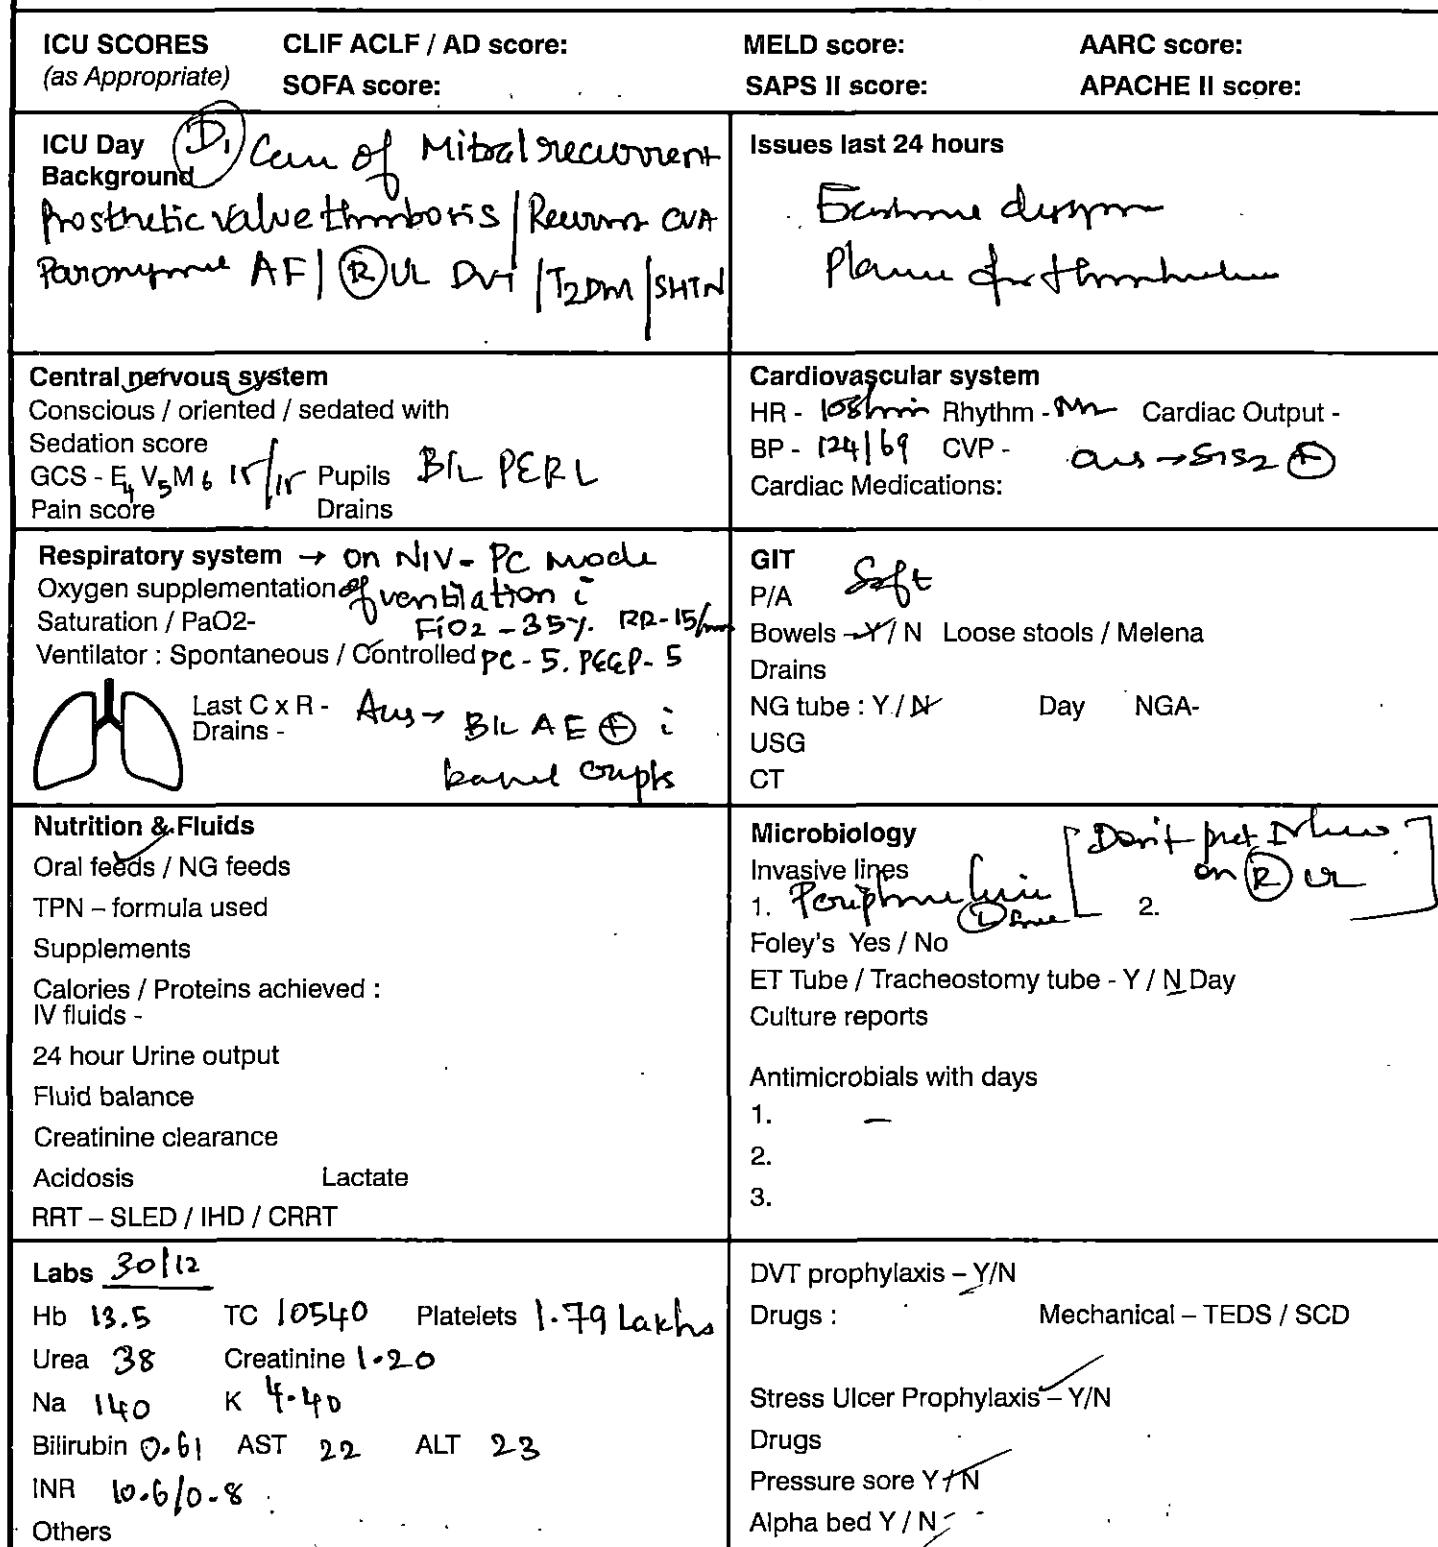 ICU SCORES CLIF ACLF / AD score: MELD score: AARC score:
(as Appropriate) SOFA score: SAPS II score: APACHE II score:
ICU Day D1 of Mitral recurrent
Background
Prosthetic valve thrombosis / Recurrent CVA
AF / (R) UL DVT / T2DM / SHTN
Issues last 24 hours
Central nervous system
Conscious / oriented / sedated with
Sedation score
GCS - E4 V5 M6 15/15 Pupils B/L PERL
Pain score Drains
Cardiovascular system
HR - 108/min Rhythm - Cardiac Output -
BP - 124/69 CVP - S1S2 (+)
Cardiac Medications:
Respiratory system → on NIV - PC mode
Oxygen supplementation of ventilation c̄
Saturation / PaO2- FiO2 - 35%. RR-15/min
Ventilator : Spontaneous / Controlled PC - 5. PEEP- 5
Last C x R - Aus → B/L AE (+) c̄
Drains -
basal crepts
GIT
P/A Soft
Bowels - Y / N Loose stools / Melena
Drains
NG tube : Y / N Day NGA-
USG
CT
Nutrition & Fluids
Oral feeds / NG feeds
TPN – formula used
Supplements
Calories / Proteins achieved :
IV fluids -
24 hour Urine output
Fluid balance
Creatinine clearance
Acidosis Lactate
RRT – SLED / IHD / CRRT
Microbiology [Don't
Invasive lines on (R) UL]
1. 2.
Foley's Yes / No
ET Tube / Tracheostomy tube - Y / N Day
Culture reports
Antimicrobials with days
1. –
2.
3.
Labs 30/12
Hb 13.5 TC 10540 Platelets 1.79 Lakhs
Urea 38 Creatinine 1.20
Na 140 K 4.40
Bilirubin 0.61 AST 22 ALT 23
INR 10.6/0.8
Others
DVT prophylaxis – Y/N
Drugs : Mechanical – TEDS / SCD
Stress Ulcer Prophylaxis – Y/N
Drugs
Pressure sore Y / N
Alpha bed Y / N